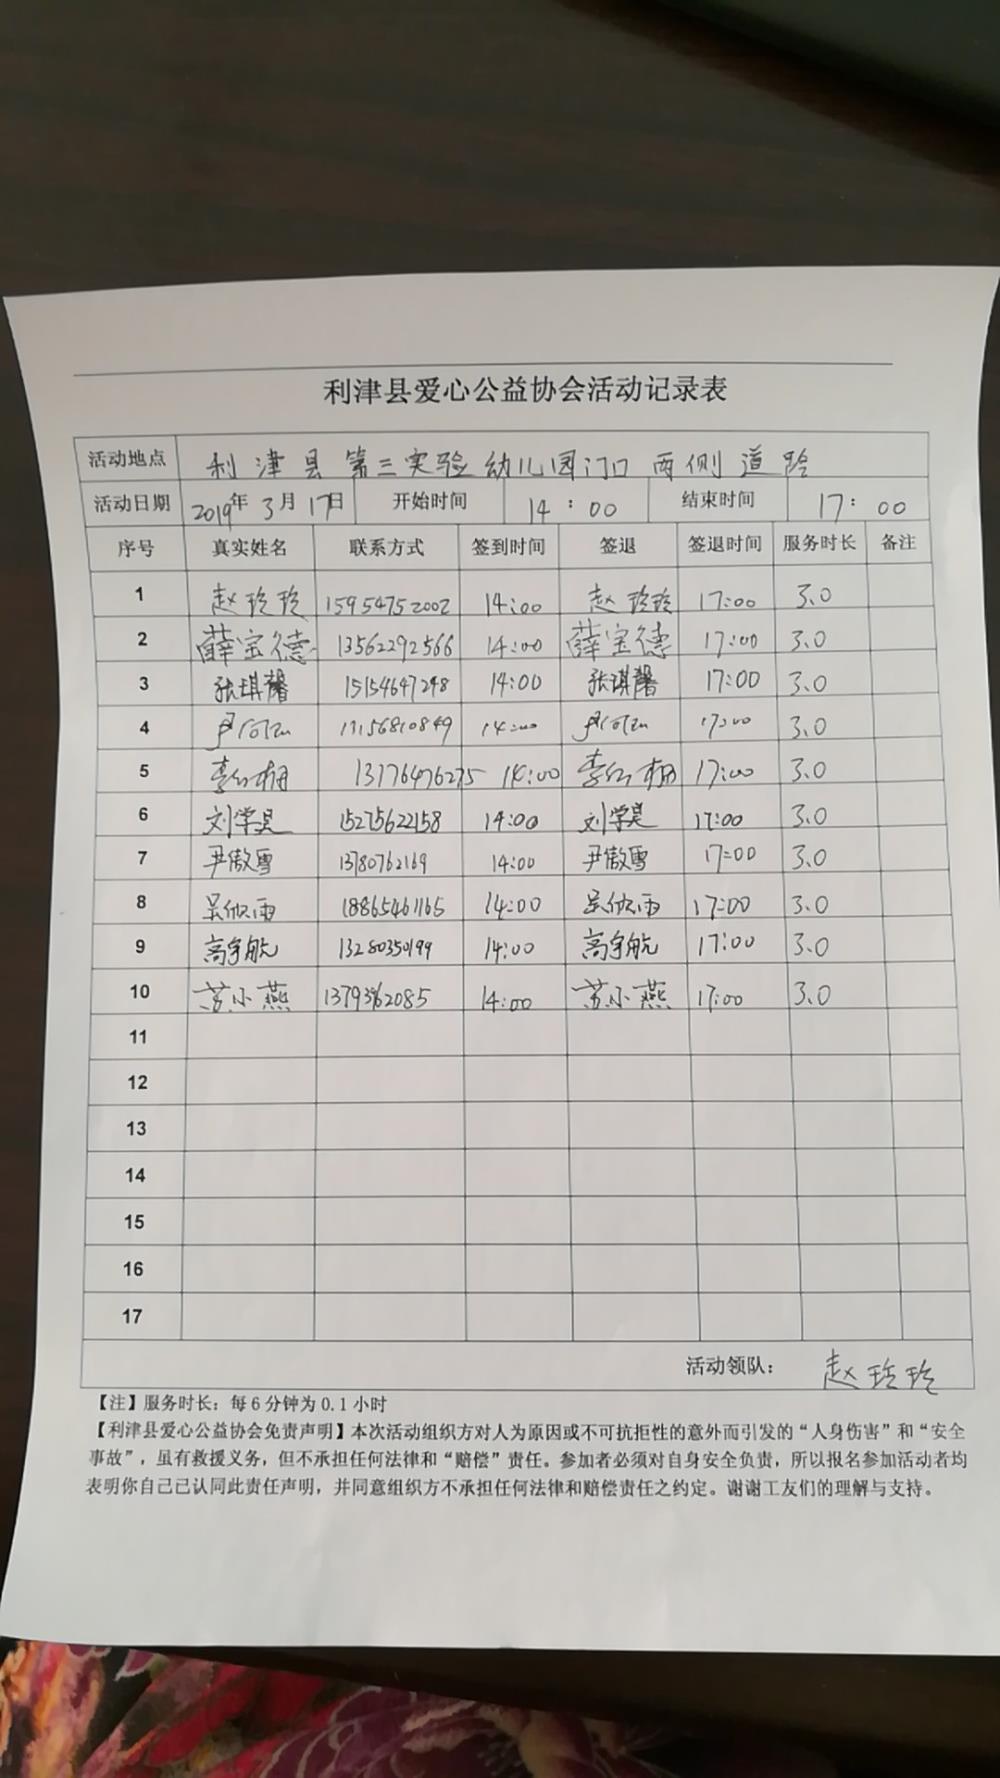 利津县爱心公益协会活动记录表
活动地点 利津县第三实验幼儿园门口两侧道路
活动日期 2019年3月17日 开始时间 14:00 结束时间 17:00
序号 真实姓名 联系方式 签到时间 签退 签退时间 服务时长 备注
1 赵玲玲 15954752002 14:00 赵玲玲 17:00 3.0
2 薛宝德 13562292566 14:00 薛宝德 17:00 3.0
3 张琪馨 15154647248 14:00 张琪馨 17:00 3.0
4 14:00 17:00 3.0
5 13176476275 14:00 17:00 3.0
6 刘学昊 15275622158 14:00 刘学昊 17:00 3.0
7 尹傲雪 14:00 尹傲雪 17:00 3.0
8 18865461165 14:00 17:00 3.0
9 高宇航 13280350199 14:00 高宇航 17:00 3.0
10 苏小燕 14:00 苏小燕 17:00 3.0
11
12
13
14
15
16
17
活动领队： 赵玲玲
【注】服务时长：每6分钟为0.1小时
【利津县爱心公益协会免责声明】本次活动组织方对人为原因或不可抗拒性的意外而引发的“人身伤害”和“安全
事故”，虽有救援义务，但不承担任何法律和“赔偿”责任。参加者必须对自身安全负责，所以报名参加活动者均
表明你自己已认同此责任声明，并同意组织方不承担任何法律和赔偿责任之约定。谢谢工友们的理解与支持。